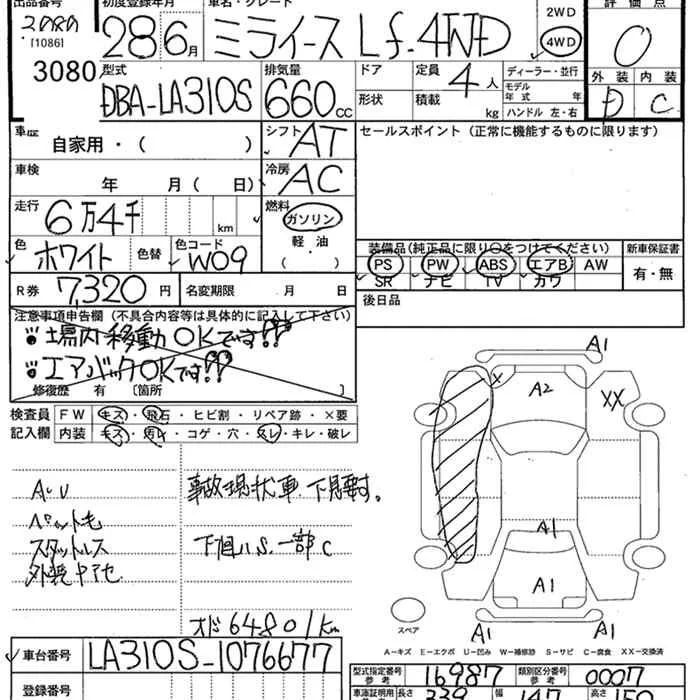 出品番号 初度登録年月 車名・グレード 評価点
3080
[1086]
28 6月 ミライース Lf. 4WD 2WD 4WD 0
3080 型式 DBA-LA310S 排気量 660cc ドア 定員 4人 ディーラー・並行 外装 内装
形状 積載 kg モデル年式 年式 ハンドル 左・右 D C
車歴 自家用・( ) シフト AT セールスポイント(正常に機能するものに限ります)
車検 年 月( 日) 冷房 AC
走行 6万4千 km 燃料 ガソリン
軽油
( )
色 ホワイト 色替 色コード W09
装備品(純正品に限り○をつけてください) 新車保証書
PS PW ABS エアB AW 有・無
SR ナビ TV カワ
R券 7,320円 名変期限 月 日 後日品
注意事項申告欄(不具合内容等は具体的に記入して下さい)
場内移動OKです!!
エアバックOKです!!
修復歴 有 〔箇所 〕
検査員 FW キズ・飛石・ヒビ割・リペア跡・×要
記入欄 内装 キズ・汚れ・コゲ・穴・スレ・キレ・破レ
A.U 事故現状車.下見要す。
ペット毛
スタットレス 下廻りS.一部C
外装中アセ
オド64801km
車台番号 LA310S-1076677
登録番号
A1
X
A2
XX
A1
A1
A1 A1
スペア
A-キズ E-エクボ U-凹み W-補修跡 S-サビ C-腐食 XX-交換済
型式指定番号 参考 16987 類別区分番号 参考 0007
車庫証明用 参考 長さ 339 幅 147 高さ 150